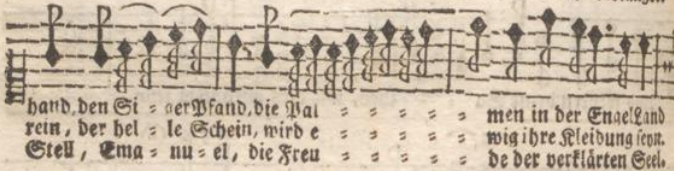 hand, den Si = ger Pfand, die Pal = = = = = men in der Engel Land
rein, der hel = le Schein, wird e = = = = = wig ihre Kleidung seyn.
Stell, Ema = nu = el, die Freu = = = = = de der verklärten Seel.